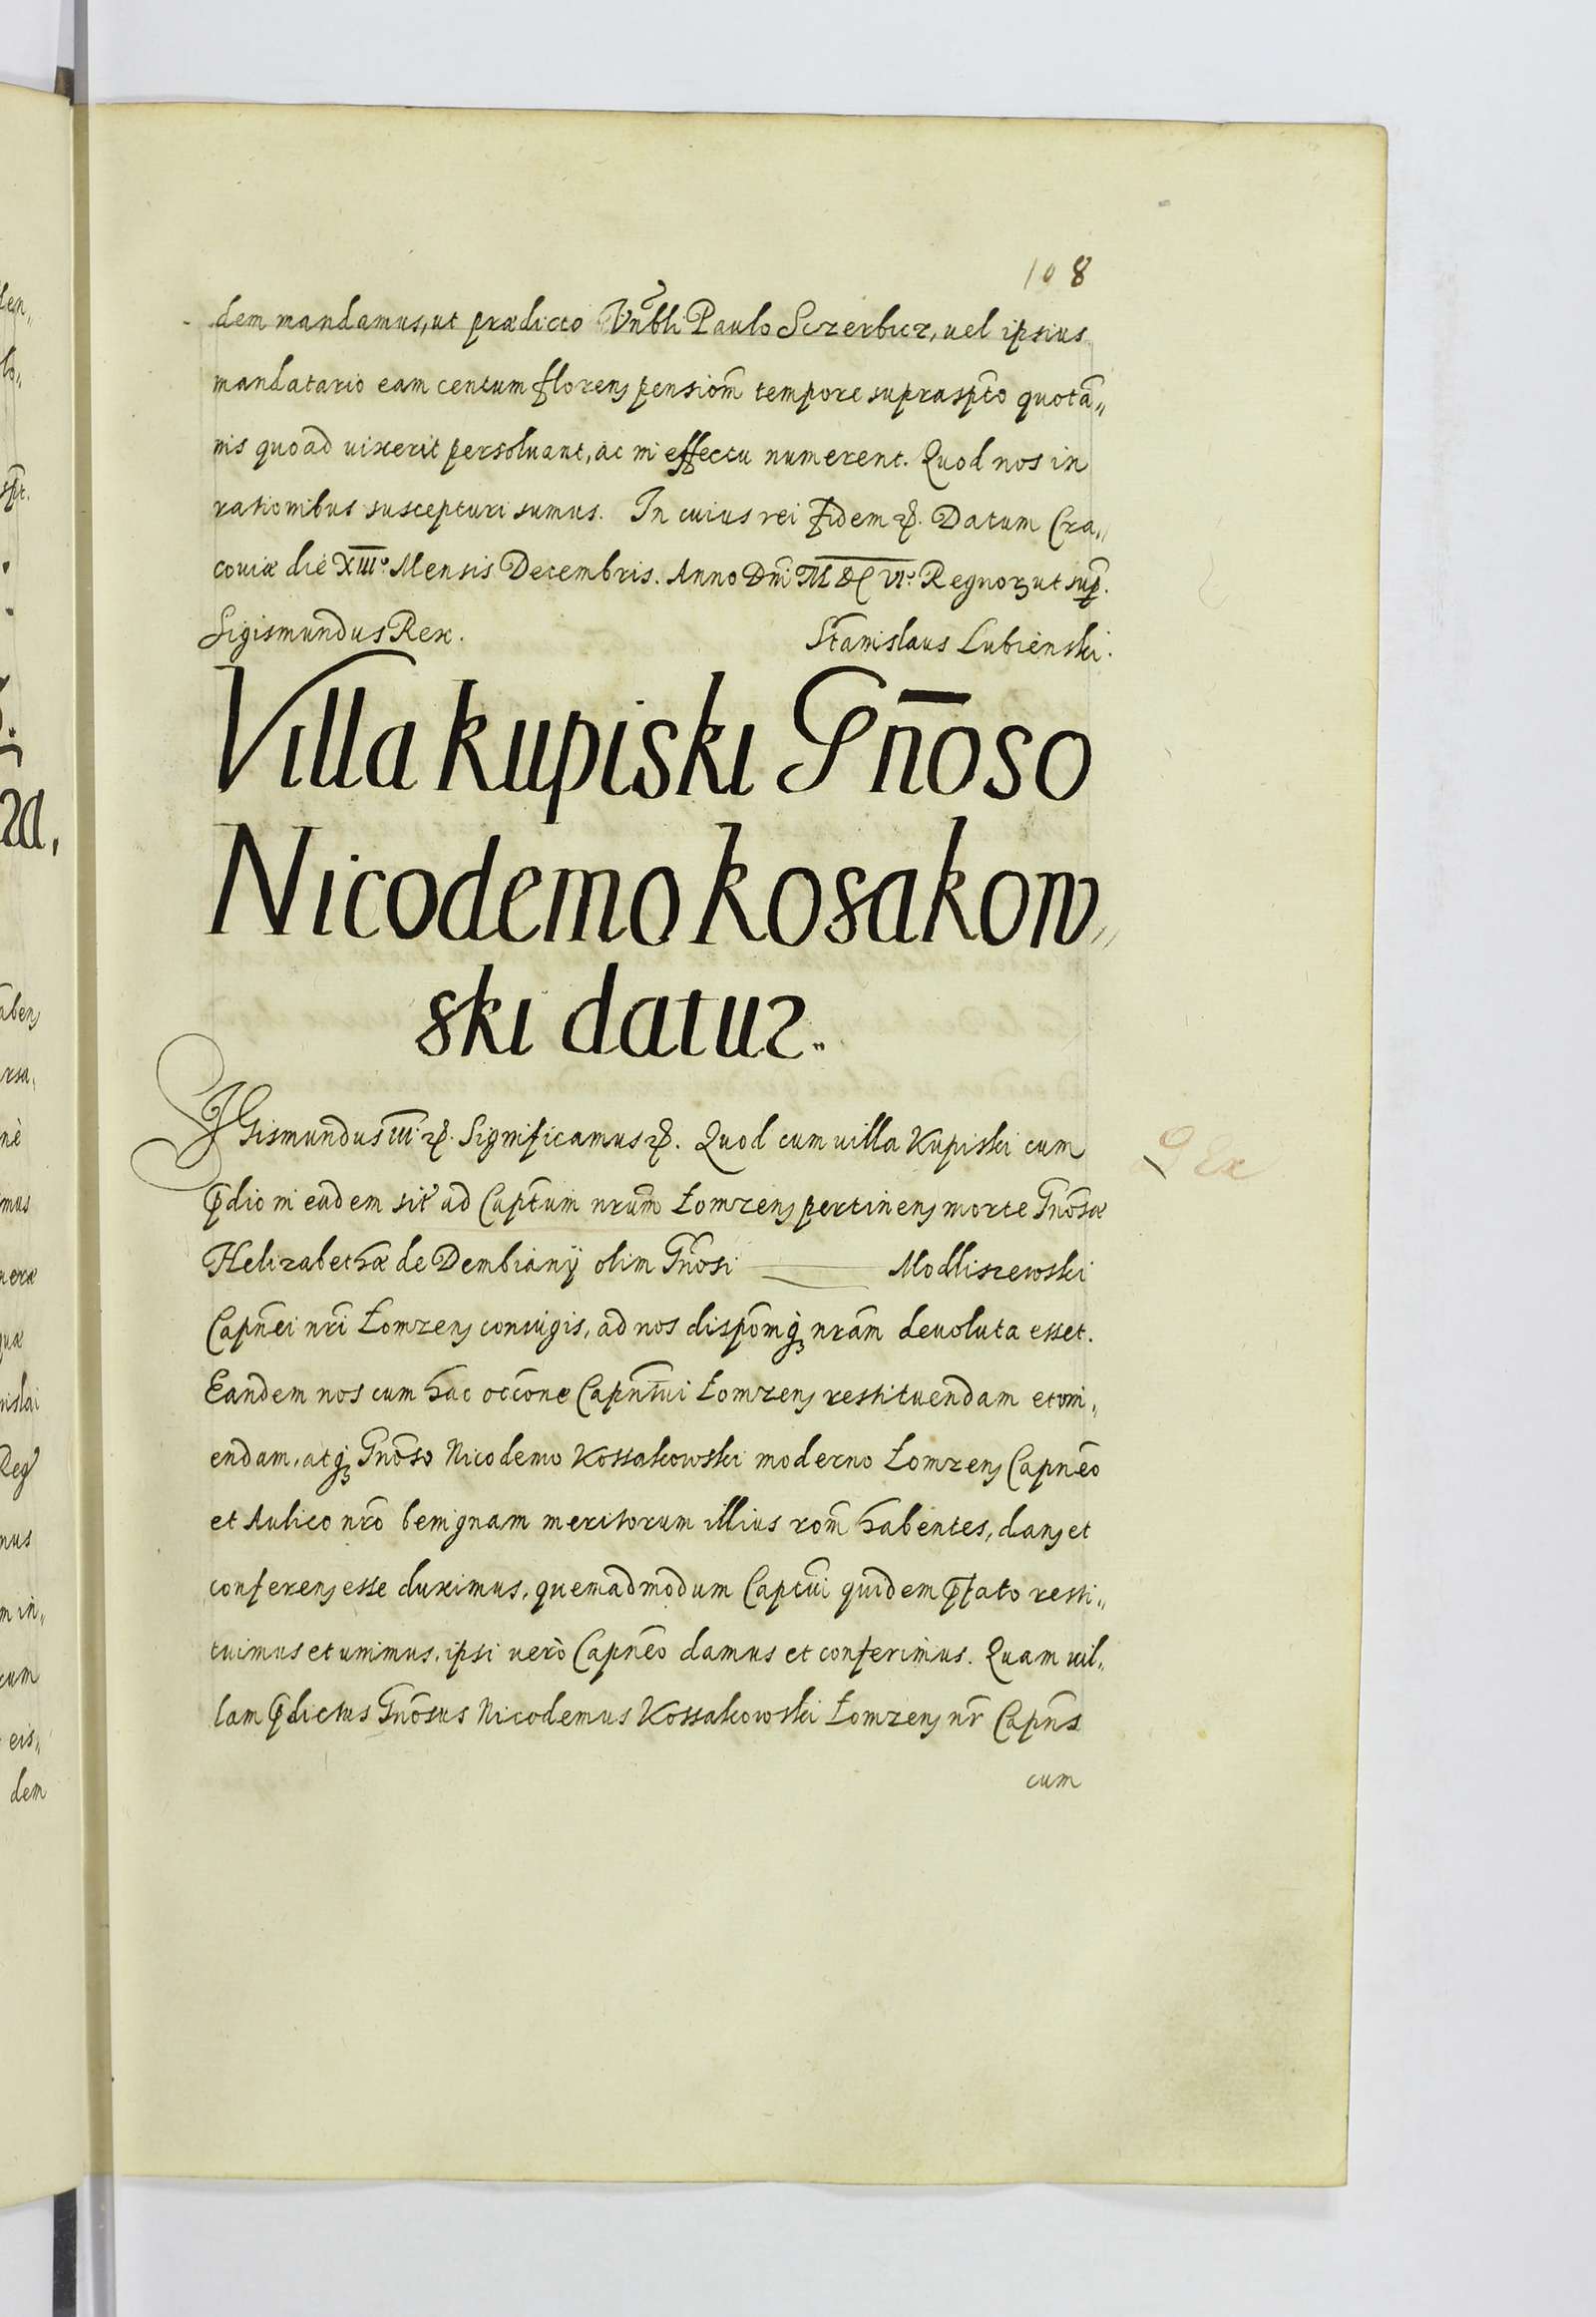 108
dem mandamus, ut prædicto Vn̄bli Paulo Sczerbicz, uel ipsius
mandatario eam centum florenꝭ pensiom̄ tempore suprasp̄to quota„
nis quoad uixerit persoluant, ac in effectu numerent. Quod nos in
rationibus suscepturi sumus. In cuius rei fidem ꝛc̄. Datum Cra„
couiæ die XIIIº Mensis Decembris. Anno Dn̄i MDCVIº Regnoꝝ ut sup̄.
Sigismundus Rex. Stanislaus Lubienski.
Villa Kupiski Gn̄oso
Nicodemo Kosakow„
ski datur.
SIGismundus III. ꝛc̄. Significamus ꝛc̄. Quod cum uilla Kupiski cum
p̄dio in eadem sit' ad Cap̄tum nr̄um Łomzenꝭ pertinenꝭ morte Gn̄osæ
Helizabethæ de Dembiany olim Gn̄osi Modliszewski
Capn̄ei nr̄i Łomzenꝭ coniugis, ad nos dispōmqꝫ nr̄am deuoluta esset.
Eandem nos cum hac occ̄one Capn̄tui Łomzenꝭ restituendam et vni„
endam, atqꝫ Gn̄oso Nicodemo Kossakowski moderno Łomzenꝭ Capn̄eo
et Aulico nr̄o benignam meritorum illius rōm habentes, danꝭ et
conferenꝭ esse duximus, quemadmodum Cap̄tui quidem p̄fato resti„
tuimus et unimus, ipsi uerò Capn̄eo damus et conferimus. Quam uil„
lam p̄dictus Gn̄osus Nicodemus Kossakowski Łomzenꝭ nr̄ Capn̄s
cum